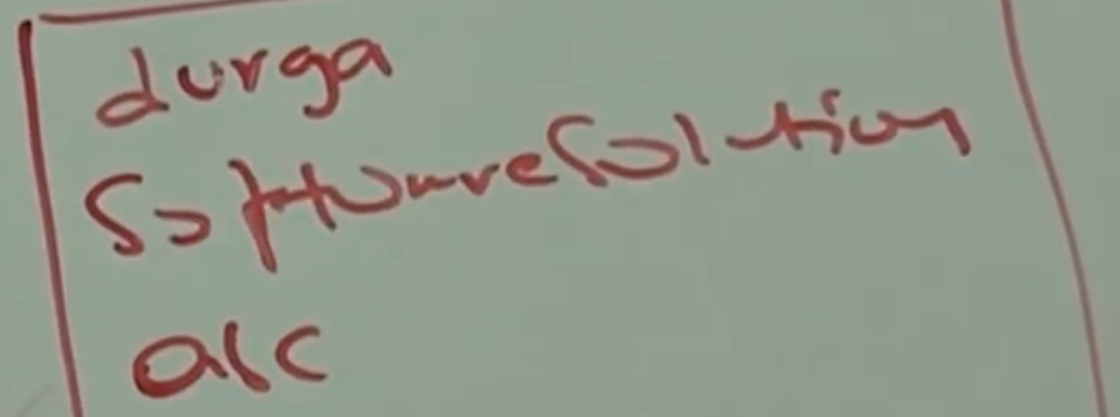 durga
SoftwareSolution
abc